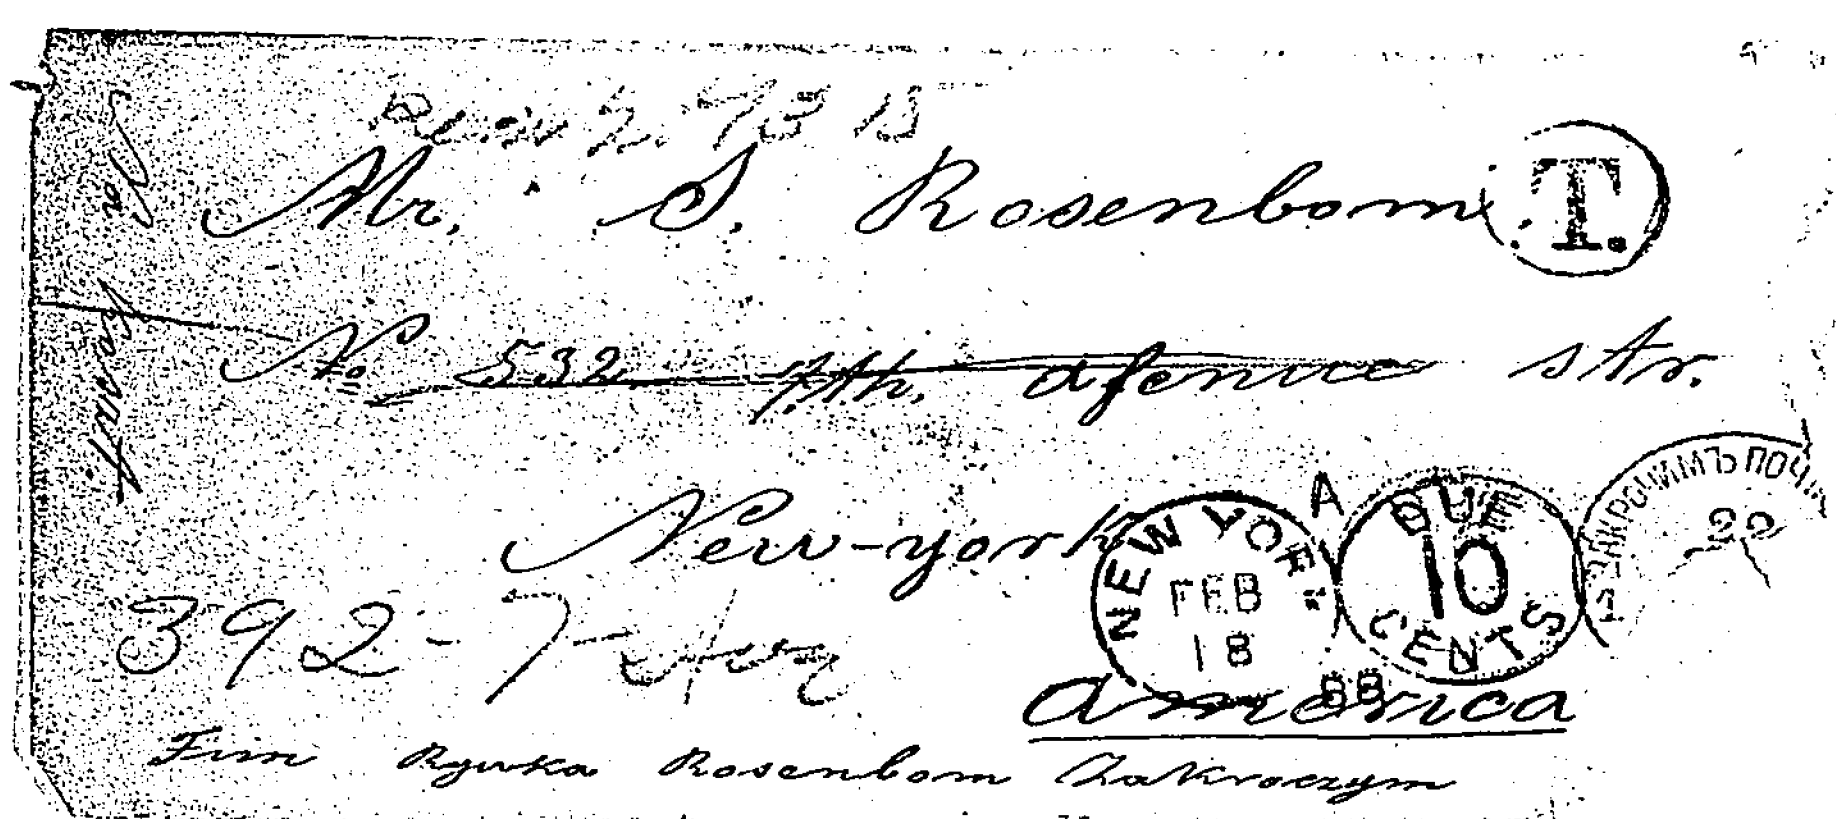 Mr. S. Rosenbom
T.
No 532 7.th. afenue str.
New-york
A
NEW YOR
FEB
18
88
DUE
10
CENTS
ЗАКРОЧИМЪ ПОЧ
22
392-7
america
From Rywka Rosenbom Zakroczym